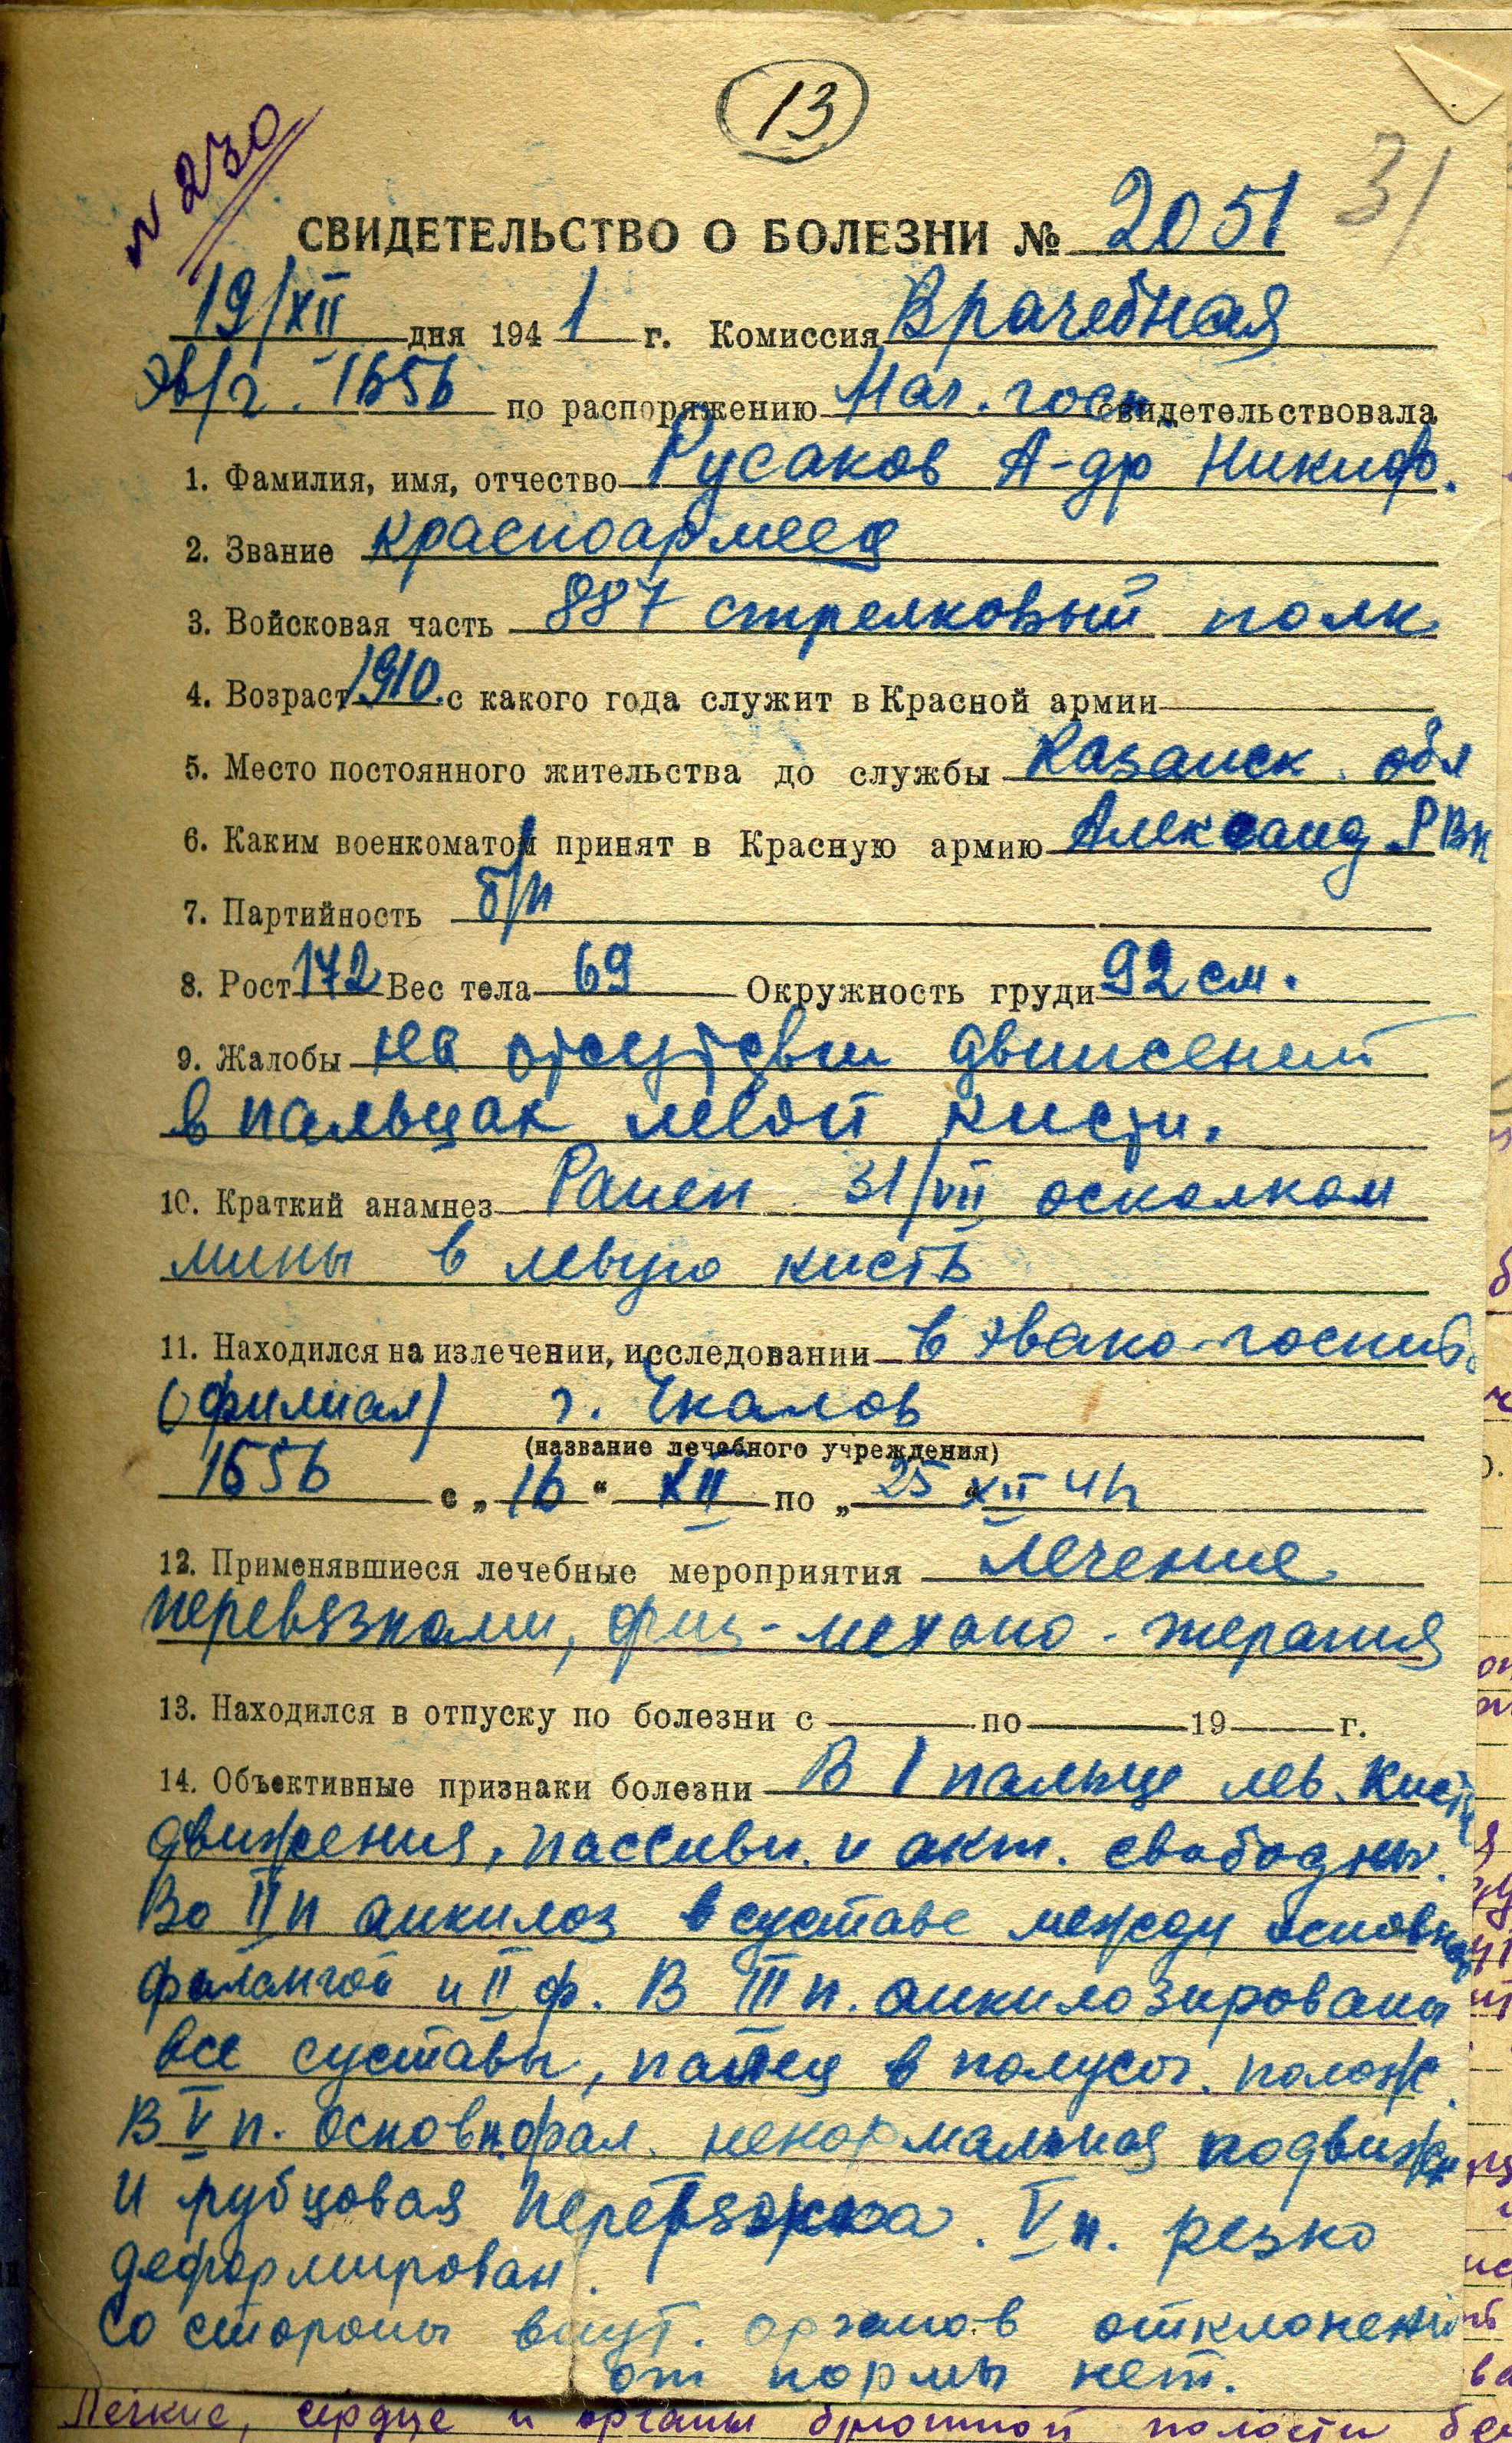 13
N 230
31
СВИДЕТЕЛЬСТВО О БОЛЕЗНИ № 2051
19/XII дня 1941 г. Комиссия Врачебная
эв/г. 1656 по распоряжению Нач. госп. свидетельствовала
1. Фамилия, имя, отчество Русаков А-др Никиф.
2. Звание красноармеец
3. Войсковая часть 887 стрелковый полк
4. Возраст 1910. с какого года служит в Красной армии
5. Место постоянного жительства до службы Казанск. обл
6. Каким военкоматом принят в Красную армию Александ. РВК
7. Партийность б/п
8. Рост 172 Вес тела 69 Окружность груди 92 см.
9. Жалобы на отсутстви движений
в пальцах левой кисти.
10. Краткий анамнез Ранен 31/VII осколком
мины в левую кисть
11. Находился на излечении, исследовании в эвако-госпит.
(филиал) г. Чкалов
(название лечебного учреждения)
1656 с „16“ XII по „25“ XII 41г
12. Применявшиеся лечебные мероприятия лечение
перевязками, физ-механо-терапия
13. Находился в отпуску по болезни с по 19 г.
14. Объективные признаки болезни В I пальце лев. кисти
движения, пассивн. и акт. свободны.
Во II п анкилоз в суставе между основной
фалангой и II ф. В III п. анкилозированы
все суставы, палец в полусог. полож.
В V п. основн. фал. ненормальная подвижн
и рубцовая перевязка. V п. резко
деформирован.
Со стороны внут. органов отклонений
от нормы нет.
Легкие, сердце и органы брюшной полости без